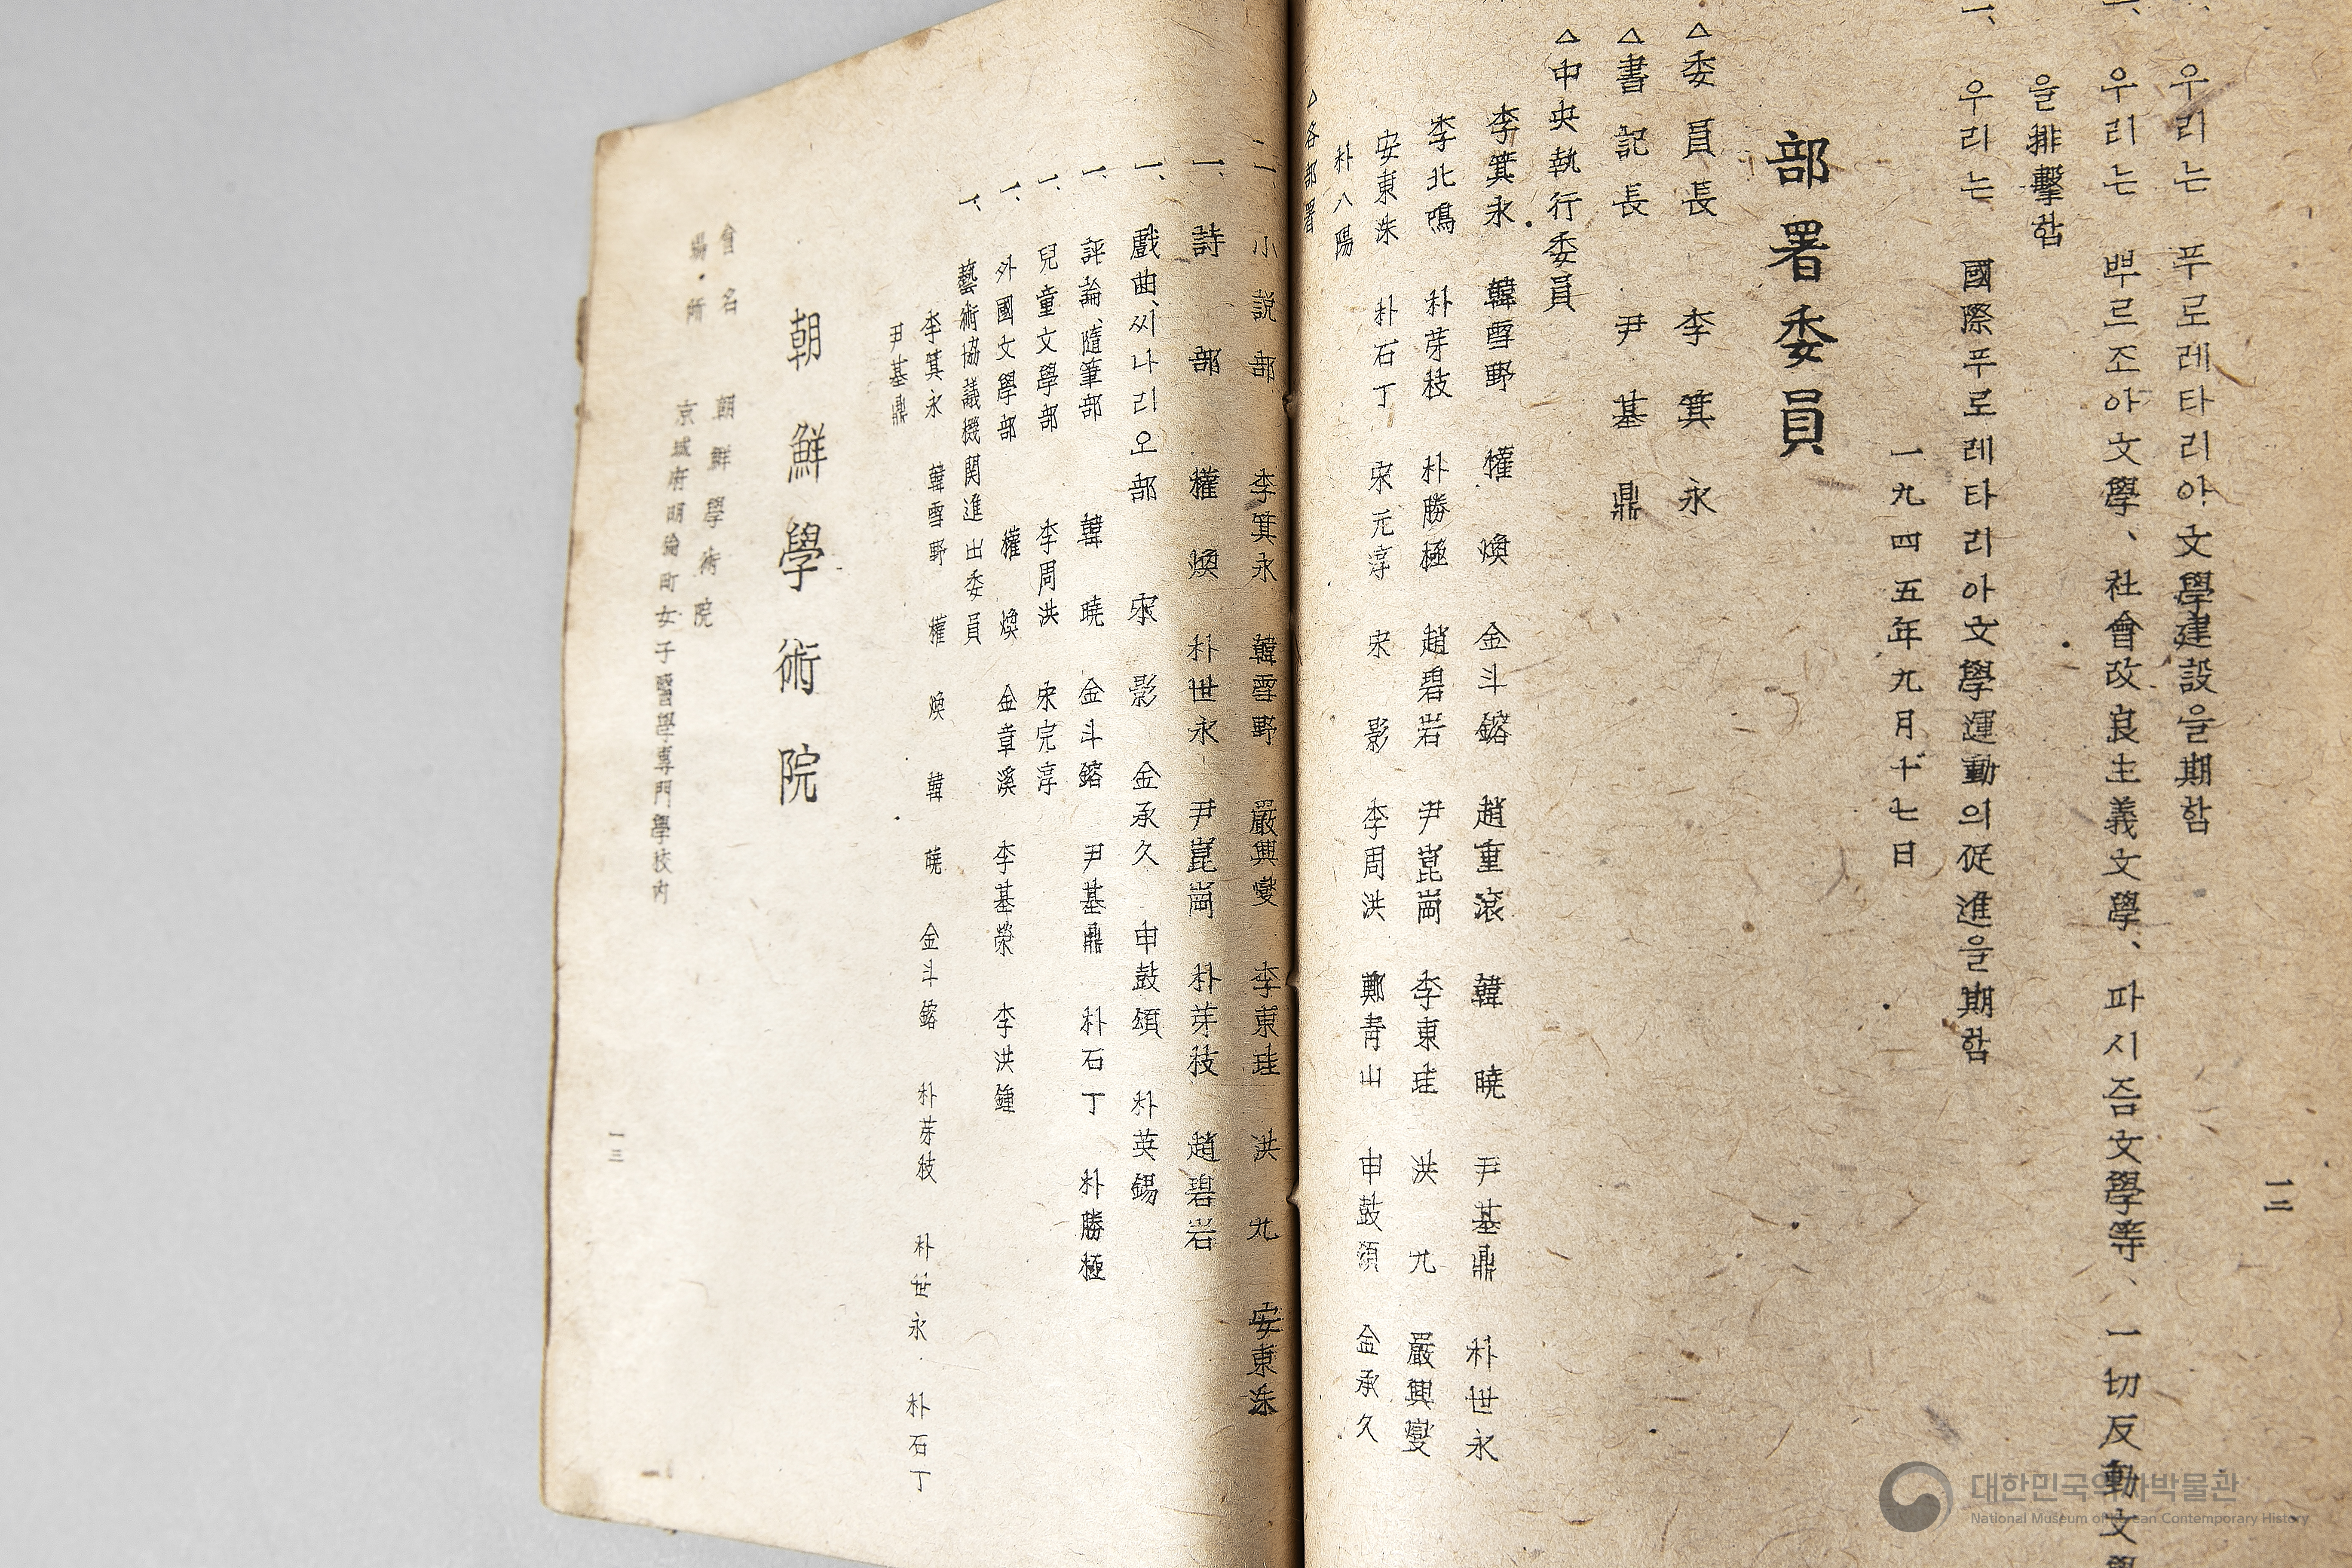 一、우리는 푸로레타리아文學建設을期함
一、우리는 뿌르조아文學、社會改良主義文學、파시즘文學等、一切反動文學
을排擊함
一、우리는 國際푸로레타리아文學運動의促進을期함
一九四五年九月十七日
部署委員
△委員長 李箕永
△書記長 尹基鼎
△中央執行委員
李箕永 韓雪野 權煥 金斗鎔 趙重滾 韓曉 尹基鼎 朴世永
李北鳴 朴芽枝 朴勝極 趙碧岩 尹崑崗 李東珪 洪九 嚴興燮
安東洙 朴石丁 宋元淳 宋影 李周洪 鄭青山 申鼓頌 金承久
朴八陽
一二
△各部署
一、小説部 李箕永 韓雪野 嚴興燮 李東珪 洪九 安東洙
一、詩部 權煥 朴世永 尹崑崗 朴芽枝 趙碧岩
一、戲曲、씨나리오部 宋影 金承久 申鼓頌 朴英錫
一、評論、隨筆部 韓曉 金斗鎔 尹基鼎 朴石丁 朴勝極
一、兒童文學部 李周洪 宋完淳
一、外國文學部 權煥 金章溪 李基榮 李洪鍾
一、藝術協議機関進出委員
李箕永 韓雪野 權煥 韓曉 金斗鎔 朴芽枝 朴世永 朴石丁
尹基鼎
朝鮮學術院
會名 朝鮮學術院
場・所 京城府明倫町女子醫學專門學校內
一三
대한민국역사박물관
National Museum of Korean Contemporary History